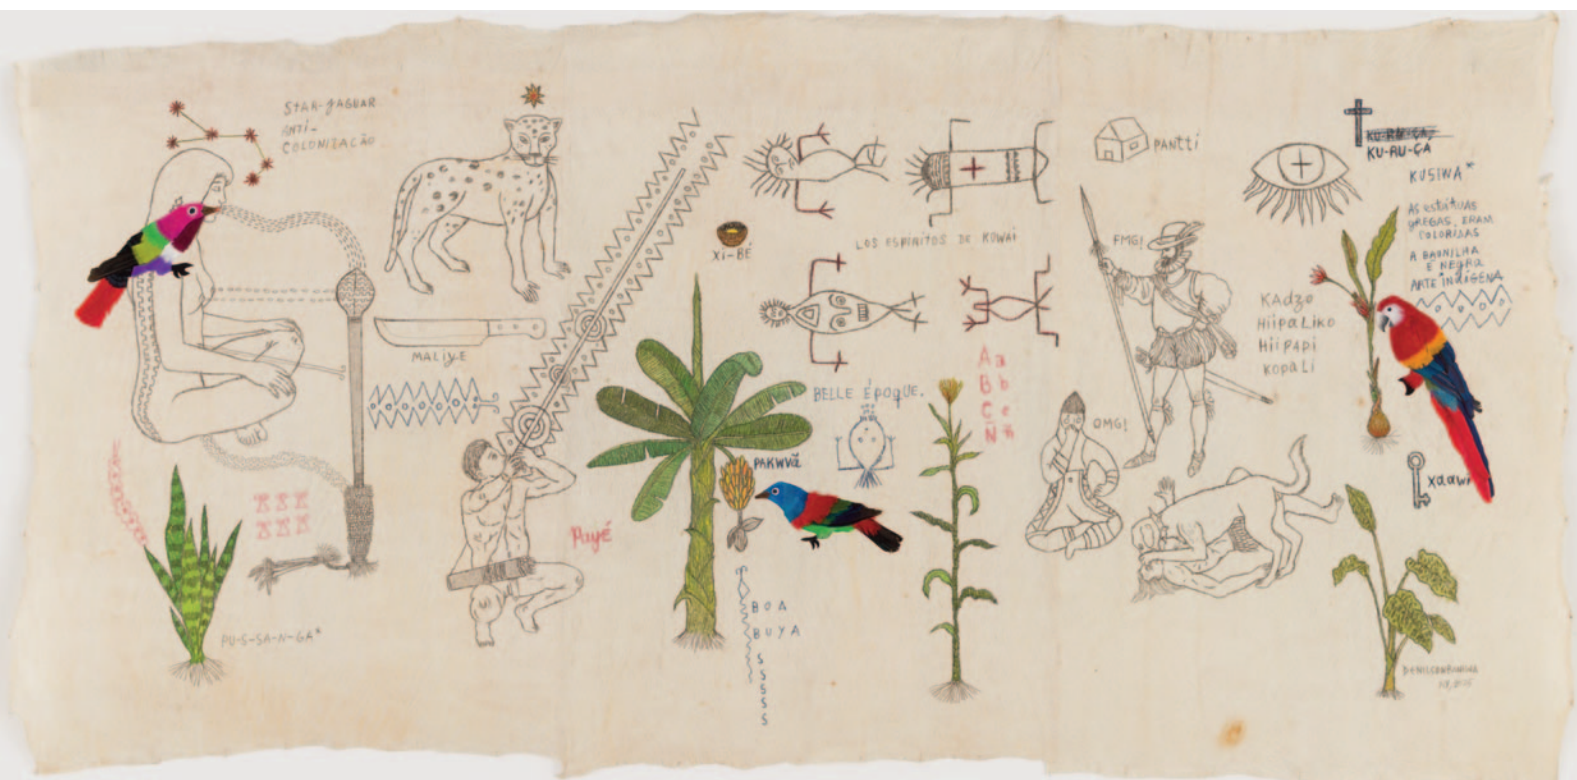 STAR-JAGUAR
ANTI-
COLONIZAÇÃO
MALIYE
PU-S-SA-N-GA*
Payé
XI-BÉ
PAKWVÃ
BOA
BUYA
S
S
S
S
S
LOS ESPIRITOS DE KOWAI
BELLE ÉPOQUE.
A a
B b
C c
Ñ ñ
PANTTI
FMG!
OMG!
KAdzo
HiipaLiKo
Hiipapi
KopaLi
KU-RU-ÇA
KU-RU-ÇA
KUSIWA*
AS estátuas
GREGAS, ERAM
COLORIDAS
A BAUNILHA
É NEGRA
ARTE INDÍGENA
Xaawi
DENILSON BANIWA